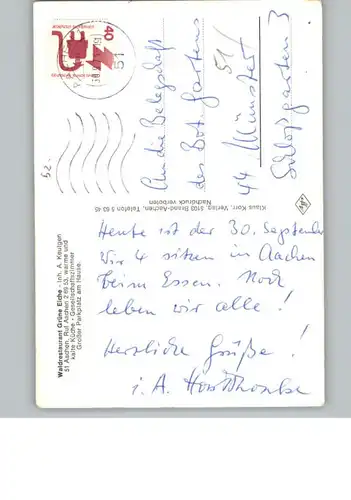 Waldrestaurant Grüne Eiche - Inh. A. Keutgen
51 Aachen, Ruf Aachen 2 69 53, warme und
kalte Küche - Gesellschaftszimmer
Großer Parkplatz am Hause.
Klaus Korr, Verlag, 5103 Brand-Aachen, Telefon 5 63 45
Nachdruck verboten
40
51
An die Belegschaft
des Bot. Gartens
51/
44 Münster
Schloßgarten 3
Heute ist der 30. September
Wir 4 sitzen in Aachen
beim Essen. Noch
leben wir alle!
Herzliche Grüße!
i. A.